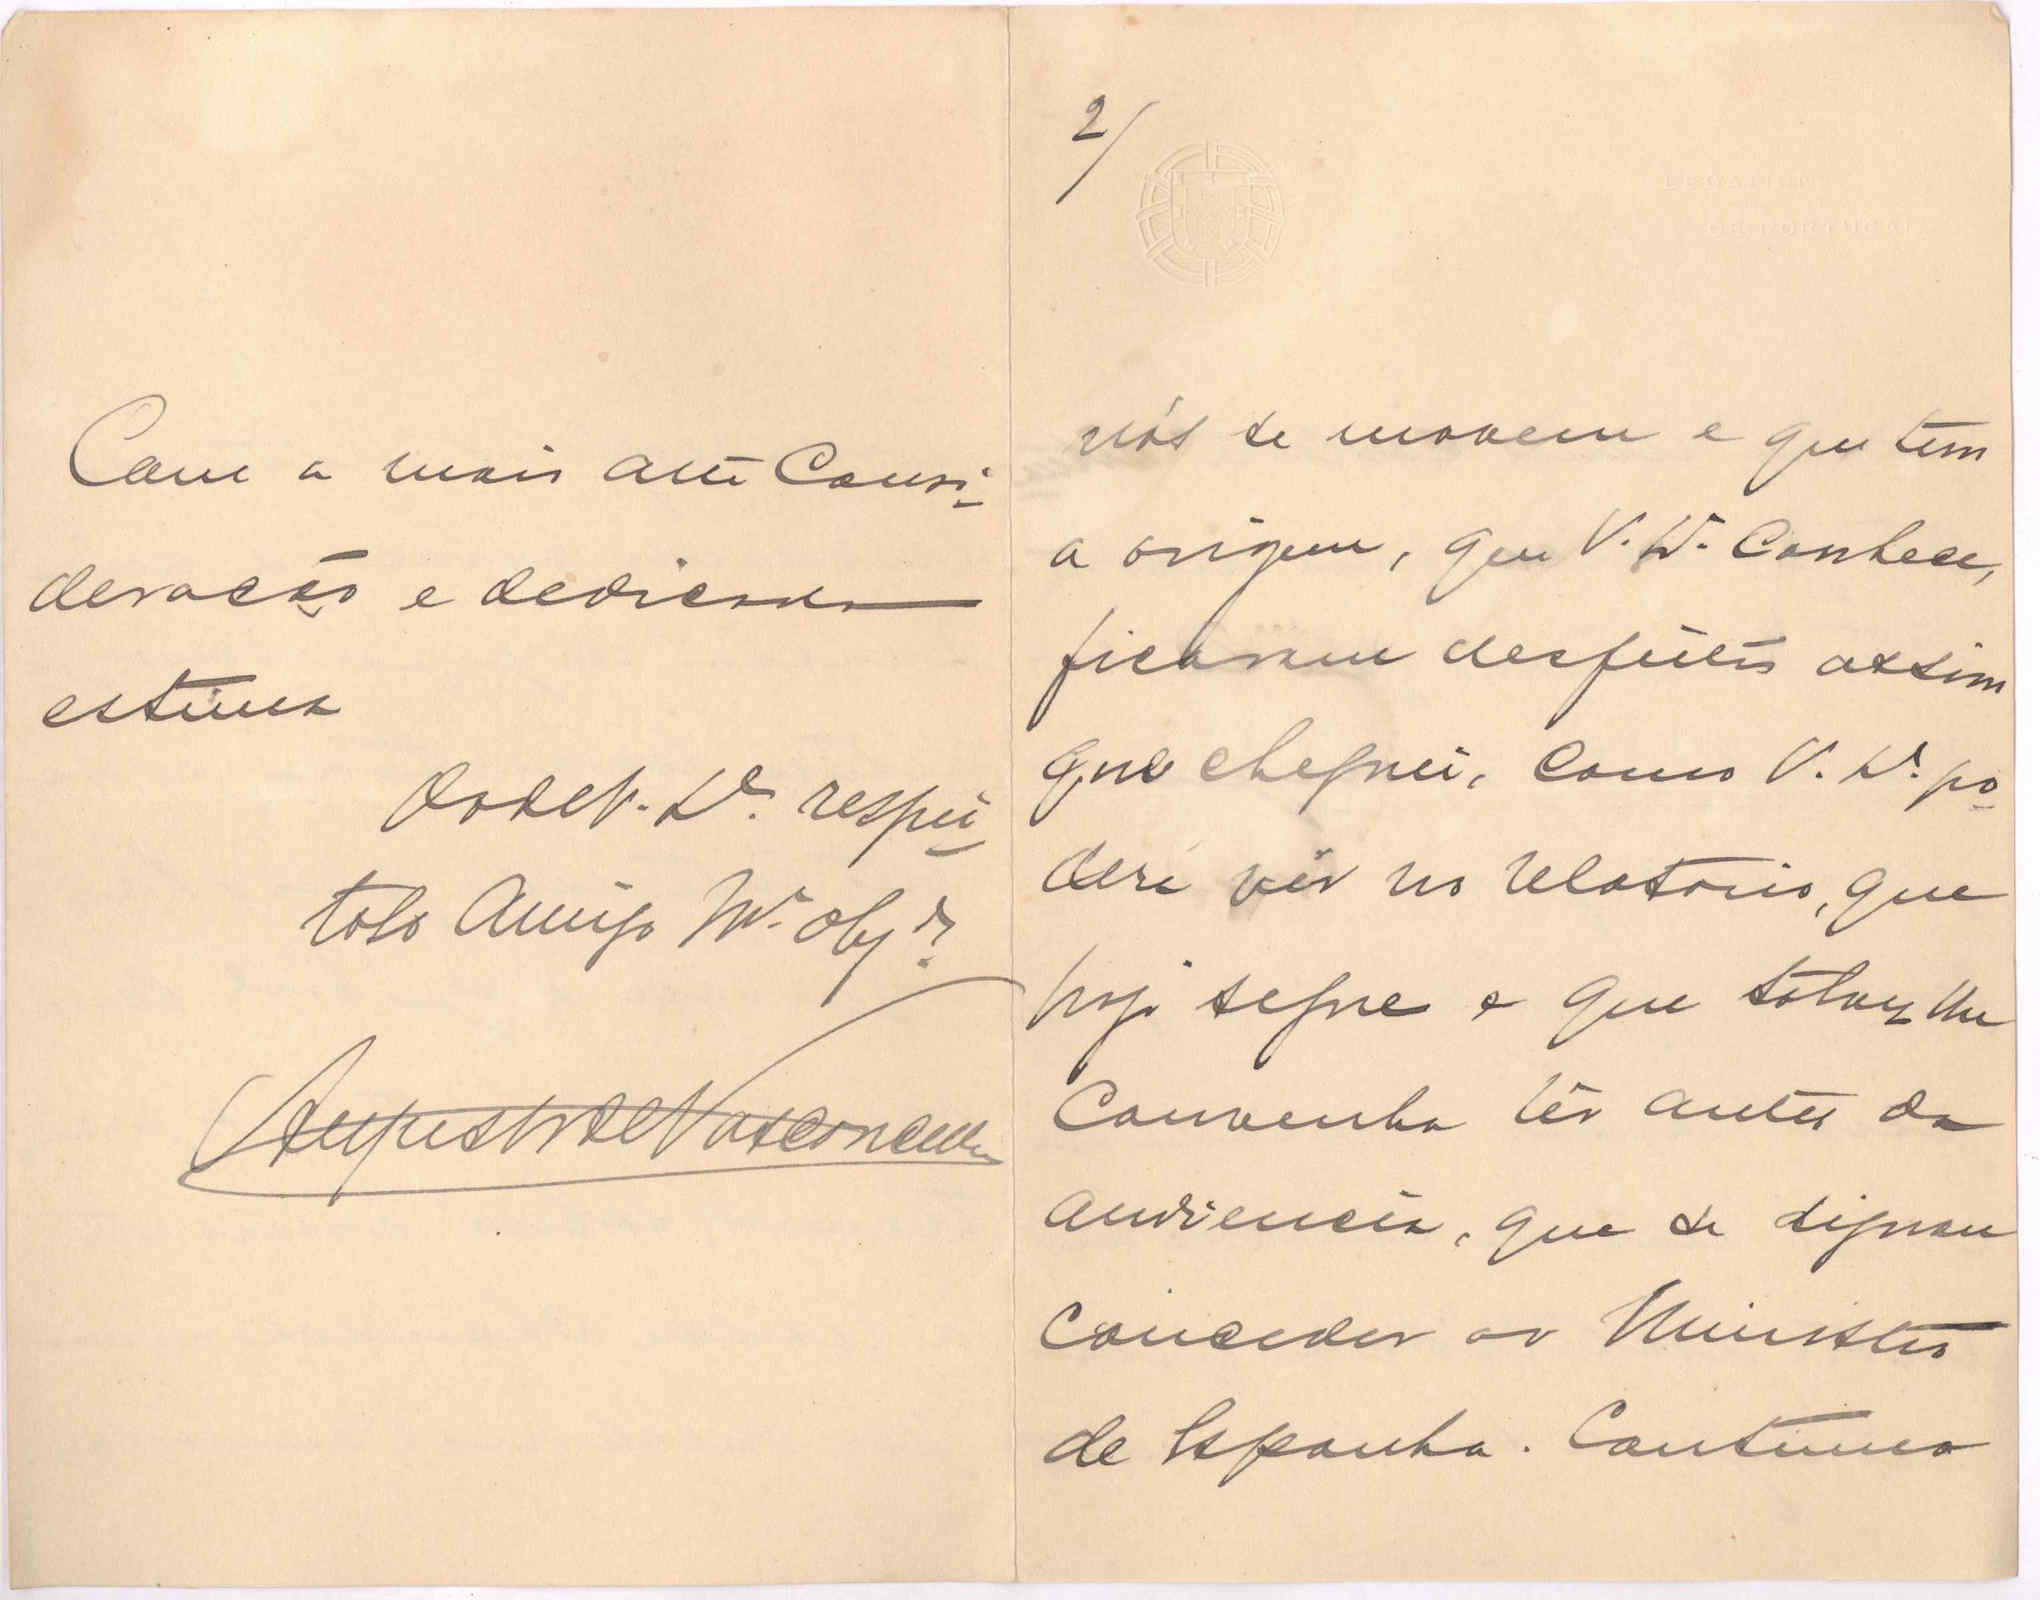 Com a mais att.ª Consi-
deração e dedicada
estima
De V. Ex.ª respei-
toso Amigo M.to obg.do
Augusto de Vasconcellos
2/
LEGATION
DE PORTUGAL
nós se movem e que tem
a origem, que V. Ex.ª Conhece,
ficaram desfeitos assim
que cheguei, como V. Ex.ª po-
derá vêr no relatorio, que
hoje segue e que talvez lhe
Convenha lêr antes da
audiencia, que se dignou
Conceder ao Ministro
de Espanha. Continuo